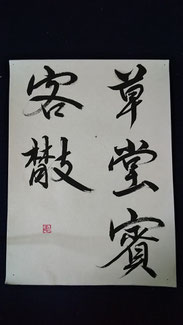 草堂賓
客散